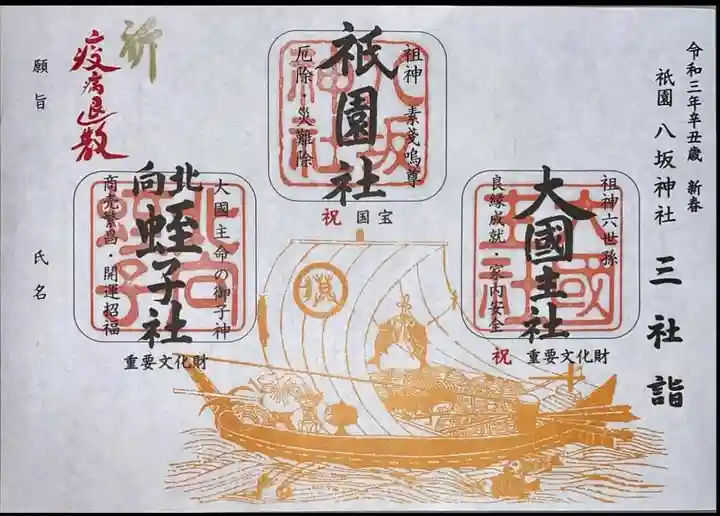 令和三年辛丑歳 新春
祇園 八坂神社 三社詣
祖神 素戔嗚尊
祇園社
厄除・災難除
八坂神社
祝 国宝
祖神六世孫
大國主社
良縁成就・家内安全
大國主社
祝 重要文化財
大国主命の御子神
北向蛭子社
商売繁昌・開運招福
北向蛭子
重要文化財
祈
疫病退散
願旨
氏名